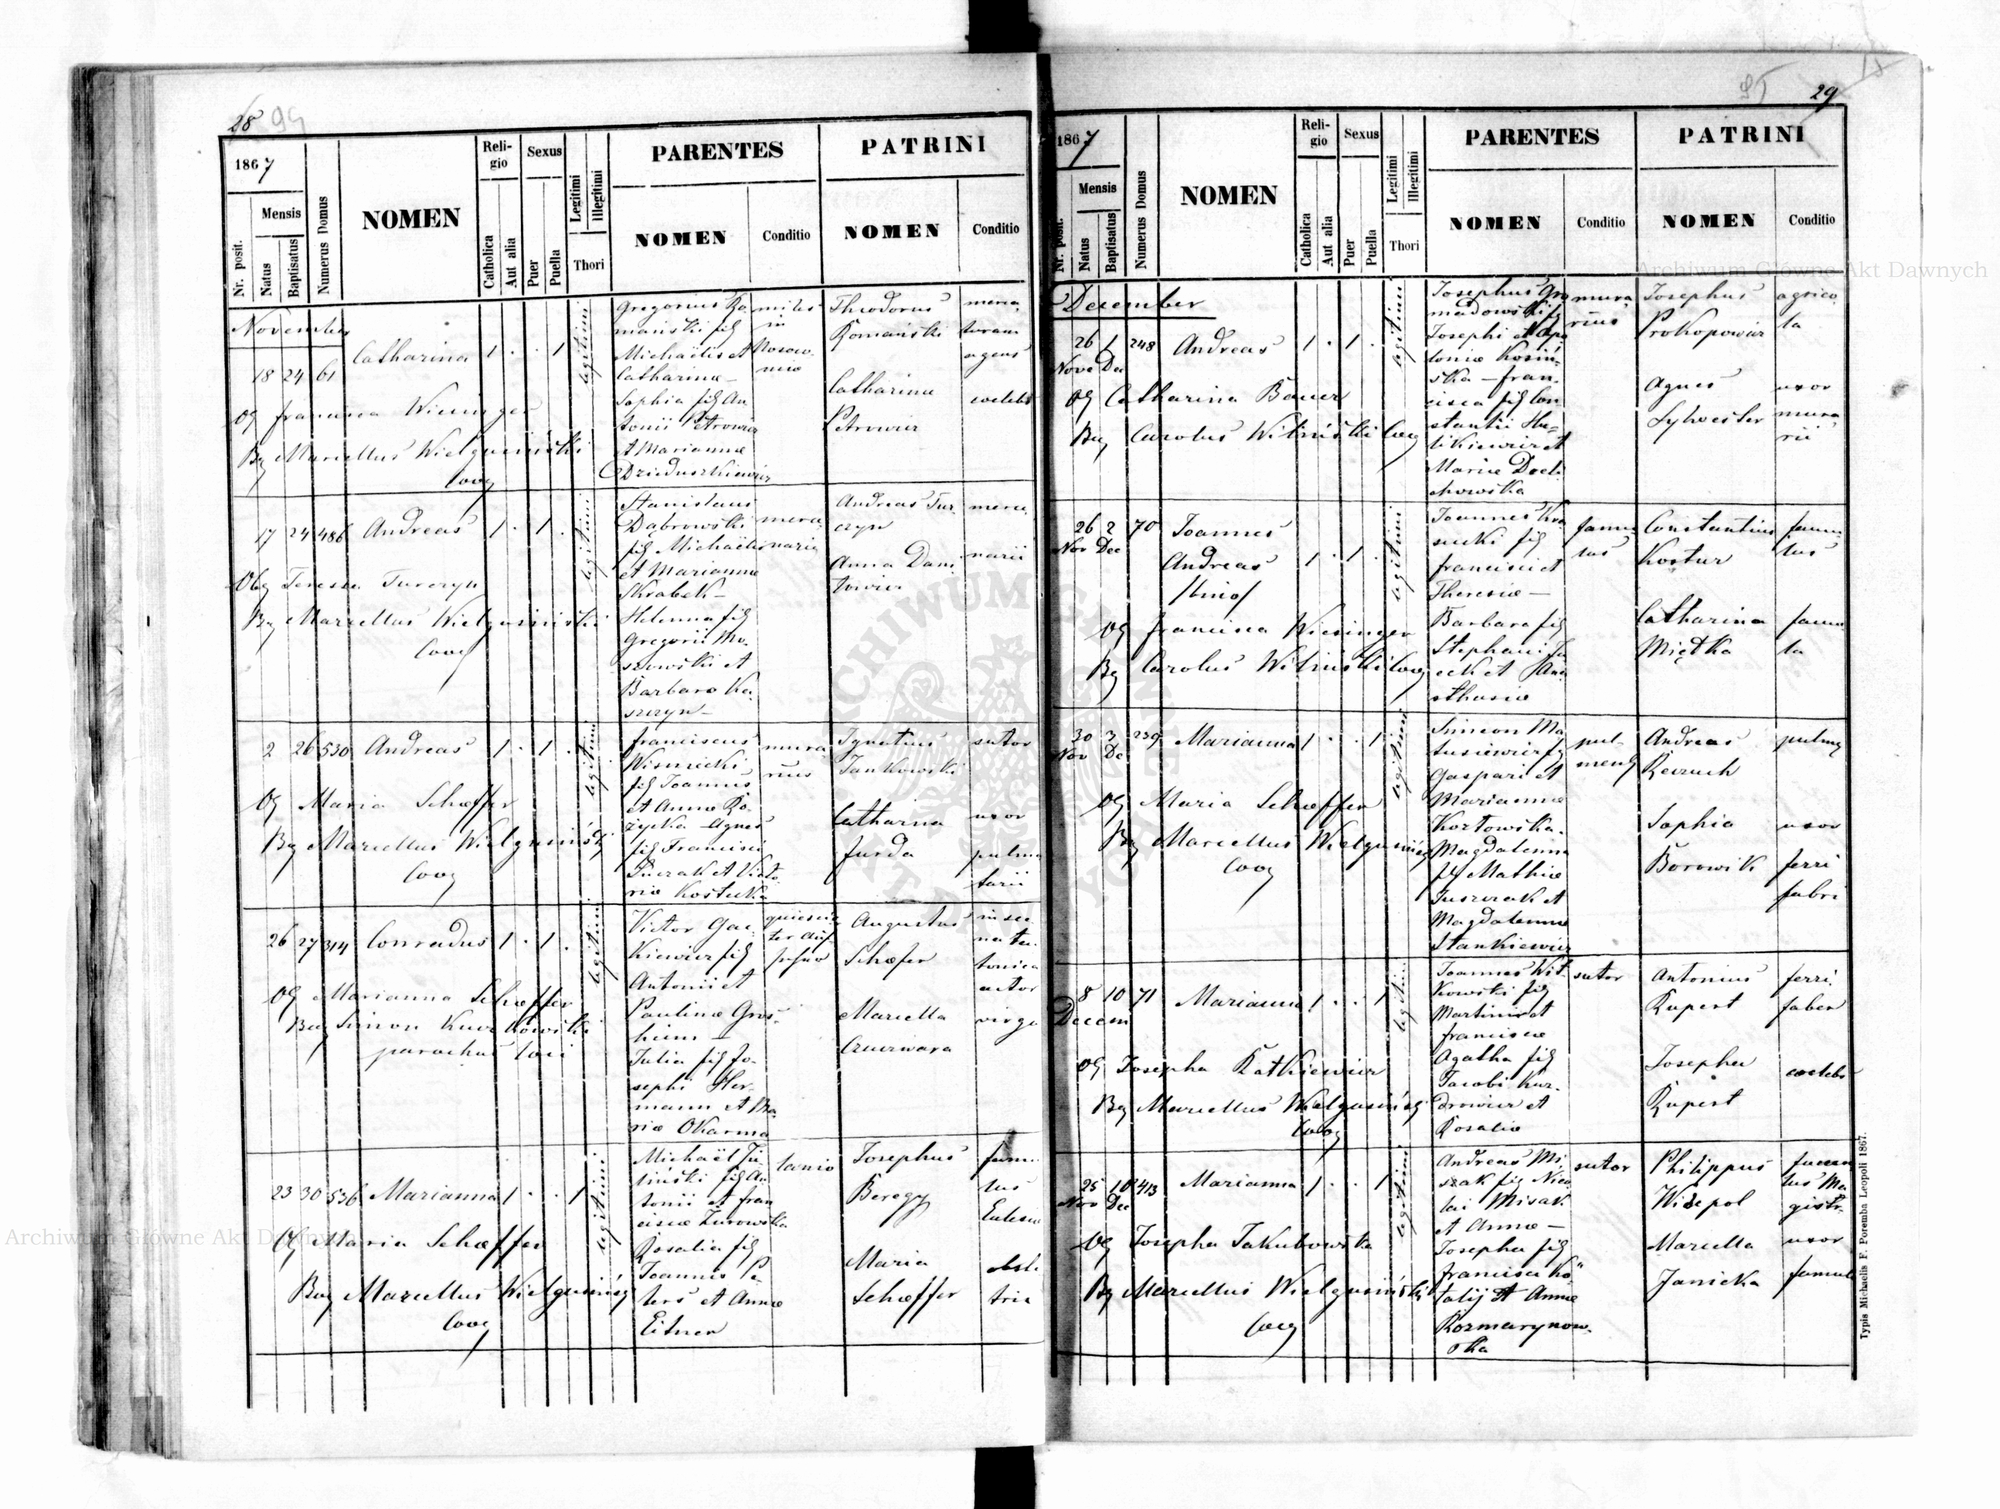 28
1867
Nr. posit.
Mensis
Natus
Baptisatus
Numerus Domus
NOMEN
Reli-
gio
Catholica
Aut alia
Sexus
Puer
Puella
Legitimi
Illegitimi
Thori
PARENTES
NOMEN
Conditio
PATRINI
NOMEN
Conditio
November
18 24 61
Catharina
1 . . 1
legitimi
Gregorius Ro
mański fil
Michaëlis et
Catharinæ
Sophia fil An
tonii Petrowicz
et Mariannæ
Dzieduszkiewicz
miles
in
Theodorus
Romański
Catharina
Petrowicz
merca
turam
agens
Og Francisca Wiesinger
Bag Marcellus Wielgusiński
Coog
17 24 486
Andreas
1 . 1 .
legitimi
Stanislaus
Dąbrowski
fil Michaëlis
et Mariannæ
Skrabek
Helenna fil
Gregorii Mo
szowski et
Barbara Ka
szczyn
merce
nariu
Andreas Tur
czyn
Anna Dani
towicz
merce
narii
Obg Teressa Turczyn
Bag Marcellus Wielgusiński
Coog
2 26 530
Andreas
1 . 1 .
legitimi
Franciscus
Wisniecki
fil Joannis
et Annæ Ró
życka Agnes
fil Francisci
riæ Kostecka
mura
rius
Ignatius
Jankowski
Catharina
Jurda
sutor
uxor
Og Maria Schæffer
Bag Marcellus Wielgusiński
Coog
26 27 314
Conradus
1 . 1 .
legitimi
Victor Gac
Kiewicz fil
Antonii et
Paulinæ Gros
heim
Julia fil Jo
sephi Her
mann et Ma
riæ Okarma
Augustus
Schæfer
Marcella
Czuczwara
virgo
Og Marianna Schæffer
Bag Simon
parochus loci
23 30 536
Marianna
1 . . 1
legitimi
Michaël Ju
siński fil An
tonii et Fran
ciscæ Żurowska
Rosalia fil
Joannis Pe
ters et Annæ
Eitner
lanio
Josephus
Beregy
Maria
Schæffer
famu
lus
obste
trix
Og Maria Schæffer
Bag Marcellus Wielgusińsk
Coog
29
1867
Nr. posit.
Mensis
Natus
Baptisatus
Numerus Domus
NOMEN
Reli-
gio
Catholica
Aut alia
Sexus
Puer
Puella
Legitimi
Illegitimi
Thori
PARENTES
NOMEN
Conditio
PATRINI
NOMEN
Conditio
December
26 1 248
Nove De
Andreas
1 . 1 .
legitimi
Josephus Gro
madowski fil
Josephi et Apo
loniæ Kosiń
ska Fran
cisca fil Con
stantii Hu
likiewicz et
Mariæ Doeli
chowska
mura
rius
Josephus
Prokopowicz
Agnes
Sylwester
agrico
la
uxor
mura
rii
Og Catharina Bauer
Bag Carolus Wiliński Coog
26 2 70
Nov Dec
Joannes
Andreas
1 . 1 .
legitimi
Joannes Kra
sucki fil
Francisci et
Theresiæ
Barbara fil
Stephani Ja
cek et Ana
sthasiæ
famu
lus
Constantius
Kostur
Catharina
Miętka
famu
lus
famu
la
Og Francisca Wiesinger
Bg Carolus Wiliński Coog
30 3 239
Nov De
Marianna
1 . . 1
legitimi
Simeon Ma
tusiewicz fil
Gaspari et
Mariannæ
Kozłowska
Magdalenna
fil Mathiæ
Juszczak et
Magdalennæ
Stankiewicz
Andreas
Sophia
Borowik
uxor
ferri
fabri
Og Maria Schæffer
Bag Marcellus Wielgusińsk
Coog
8 10 71
Decem
Marianna
1 . . 1
legitim
Joannes Wit
kowski fil
Martini et
Franciscæ
Agatha fil
Jacobi Kur
drowicz et
Rosaliæ
sutor
Antonius
Rupert
Josepha
Rupert
ferri
faber
Og Josepha Ratkiewicz
Bag Marcellus Wielgusińsk
Coog
25 10 413
Nov Dec
Marianna
1 . . 1
legitimi
Andreas Mi
szak fil Nico
lai Misak
et Annæ
Josepha fil
Francisci Ko
talij et Annæ
Rozmarynow
ska
sutor
Philippus
Widepol
Marcella
Janicka
famu
lus Ma
gistr
uxor
famuli
Og Josepha Jakubowska
Bg Marcellus Wielgusiński
Coog
Typis Michaelis F. Poremba Leopoli 1867.
Archiwum Główne Akt Dawnych
Archiwum Główne Akt Dawnych
ARCHIWUM GŁÓWNE AKT DAWNYCH